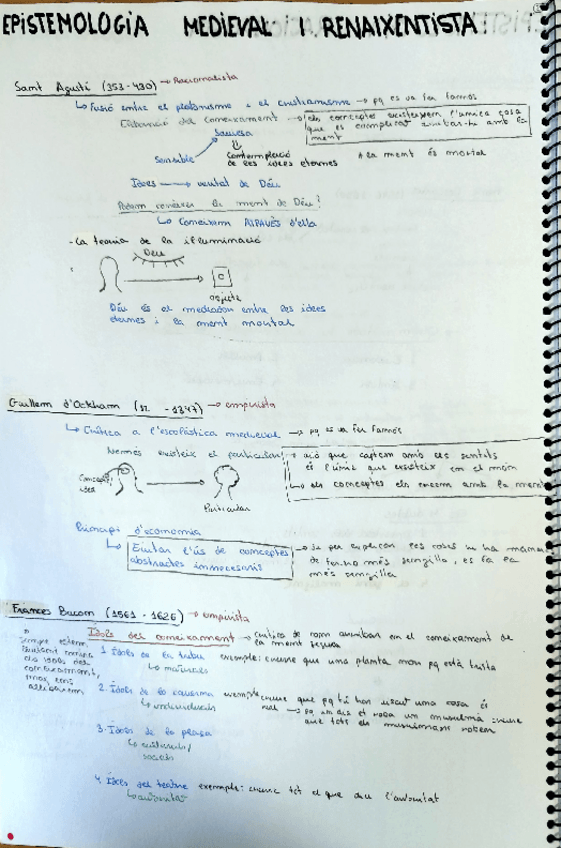 EPISTEMOLOGIA MEDIEVAL I RENAIXENTISTA
Sant Agustí (353-430) → Racionalista
↳ Fusió entre el platonisme i el cristianisme → pq es va fer famós
Elaboració del coneixement → els conceptes existeixen l'única cosa
que és complicat arribar-hi amb la
ment
Saviesa
Sensible
Contemplació
de les idees eternes
* la ment és mortal
Idees → veritat de Déu
Podem conèixer la ment de Déu?
↳ Coneixem ATRAVÉS d'ella
- La teoria de la il·luminació
Déu
C
objecte
Déu és el mediador entre les idees
eternes i la ment mortal
Guillem d'Ockham (12. -1347) → empirista
↳ Crítica a l'escolàstica medieval → pq es va fer famós
Només existeix el particular
→ això que captem amb els sentits
és l'únic que existeix en el món
↳ els conceptes els creem amb la ment
Concepte/
idea
Particular
Principi d'economia
↳ Evitar l'ús de conceptes
abstractes innecesaris
→ Si per explicar les coses hi ha manera
de fer-ho més senzilla, es fa la
més senzilla
Frances Bacon (1561-1626) → empirista
Ídols del coneixament → crítica de com arribar en el coneixament de
la ment
sempre estem
els ídols del
coneixament,
1. Ídols de la tribu exemple: creure que una planta mor pq està trista
↳ naturals
2. Ídols de la caverna exemple: creure que pq tú has viscut una cosa és
real → pq un dia et roba un musulmà creure
que tots els musulmans roben
↳ individuals
3. Ídols de la plaça
↳ culturals/
socials
4. Ídols del teatre exemple: creure tot el que diu l'autoritat
↳ autoritat